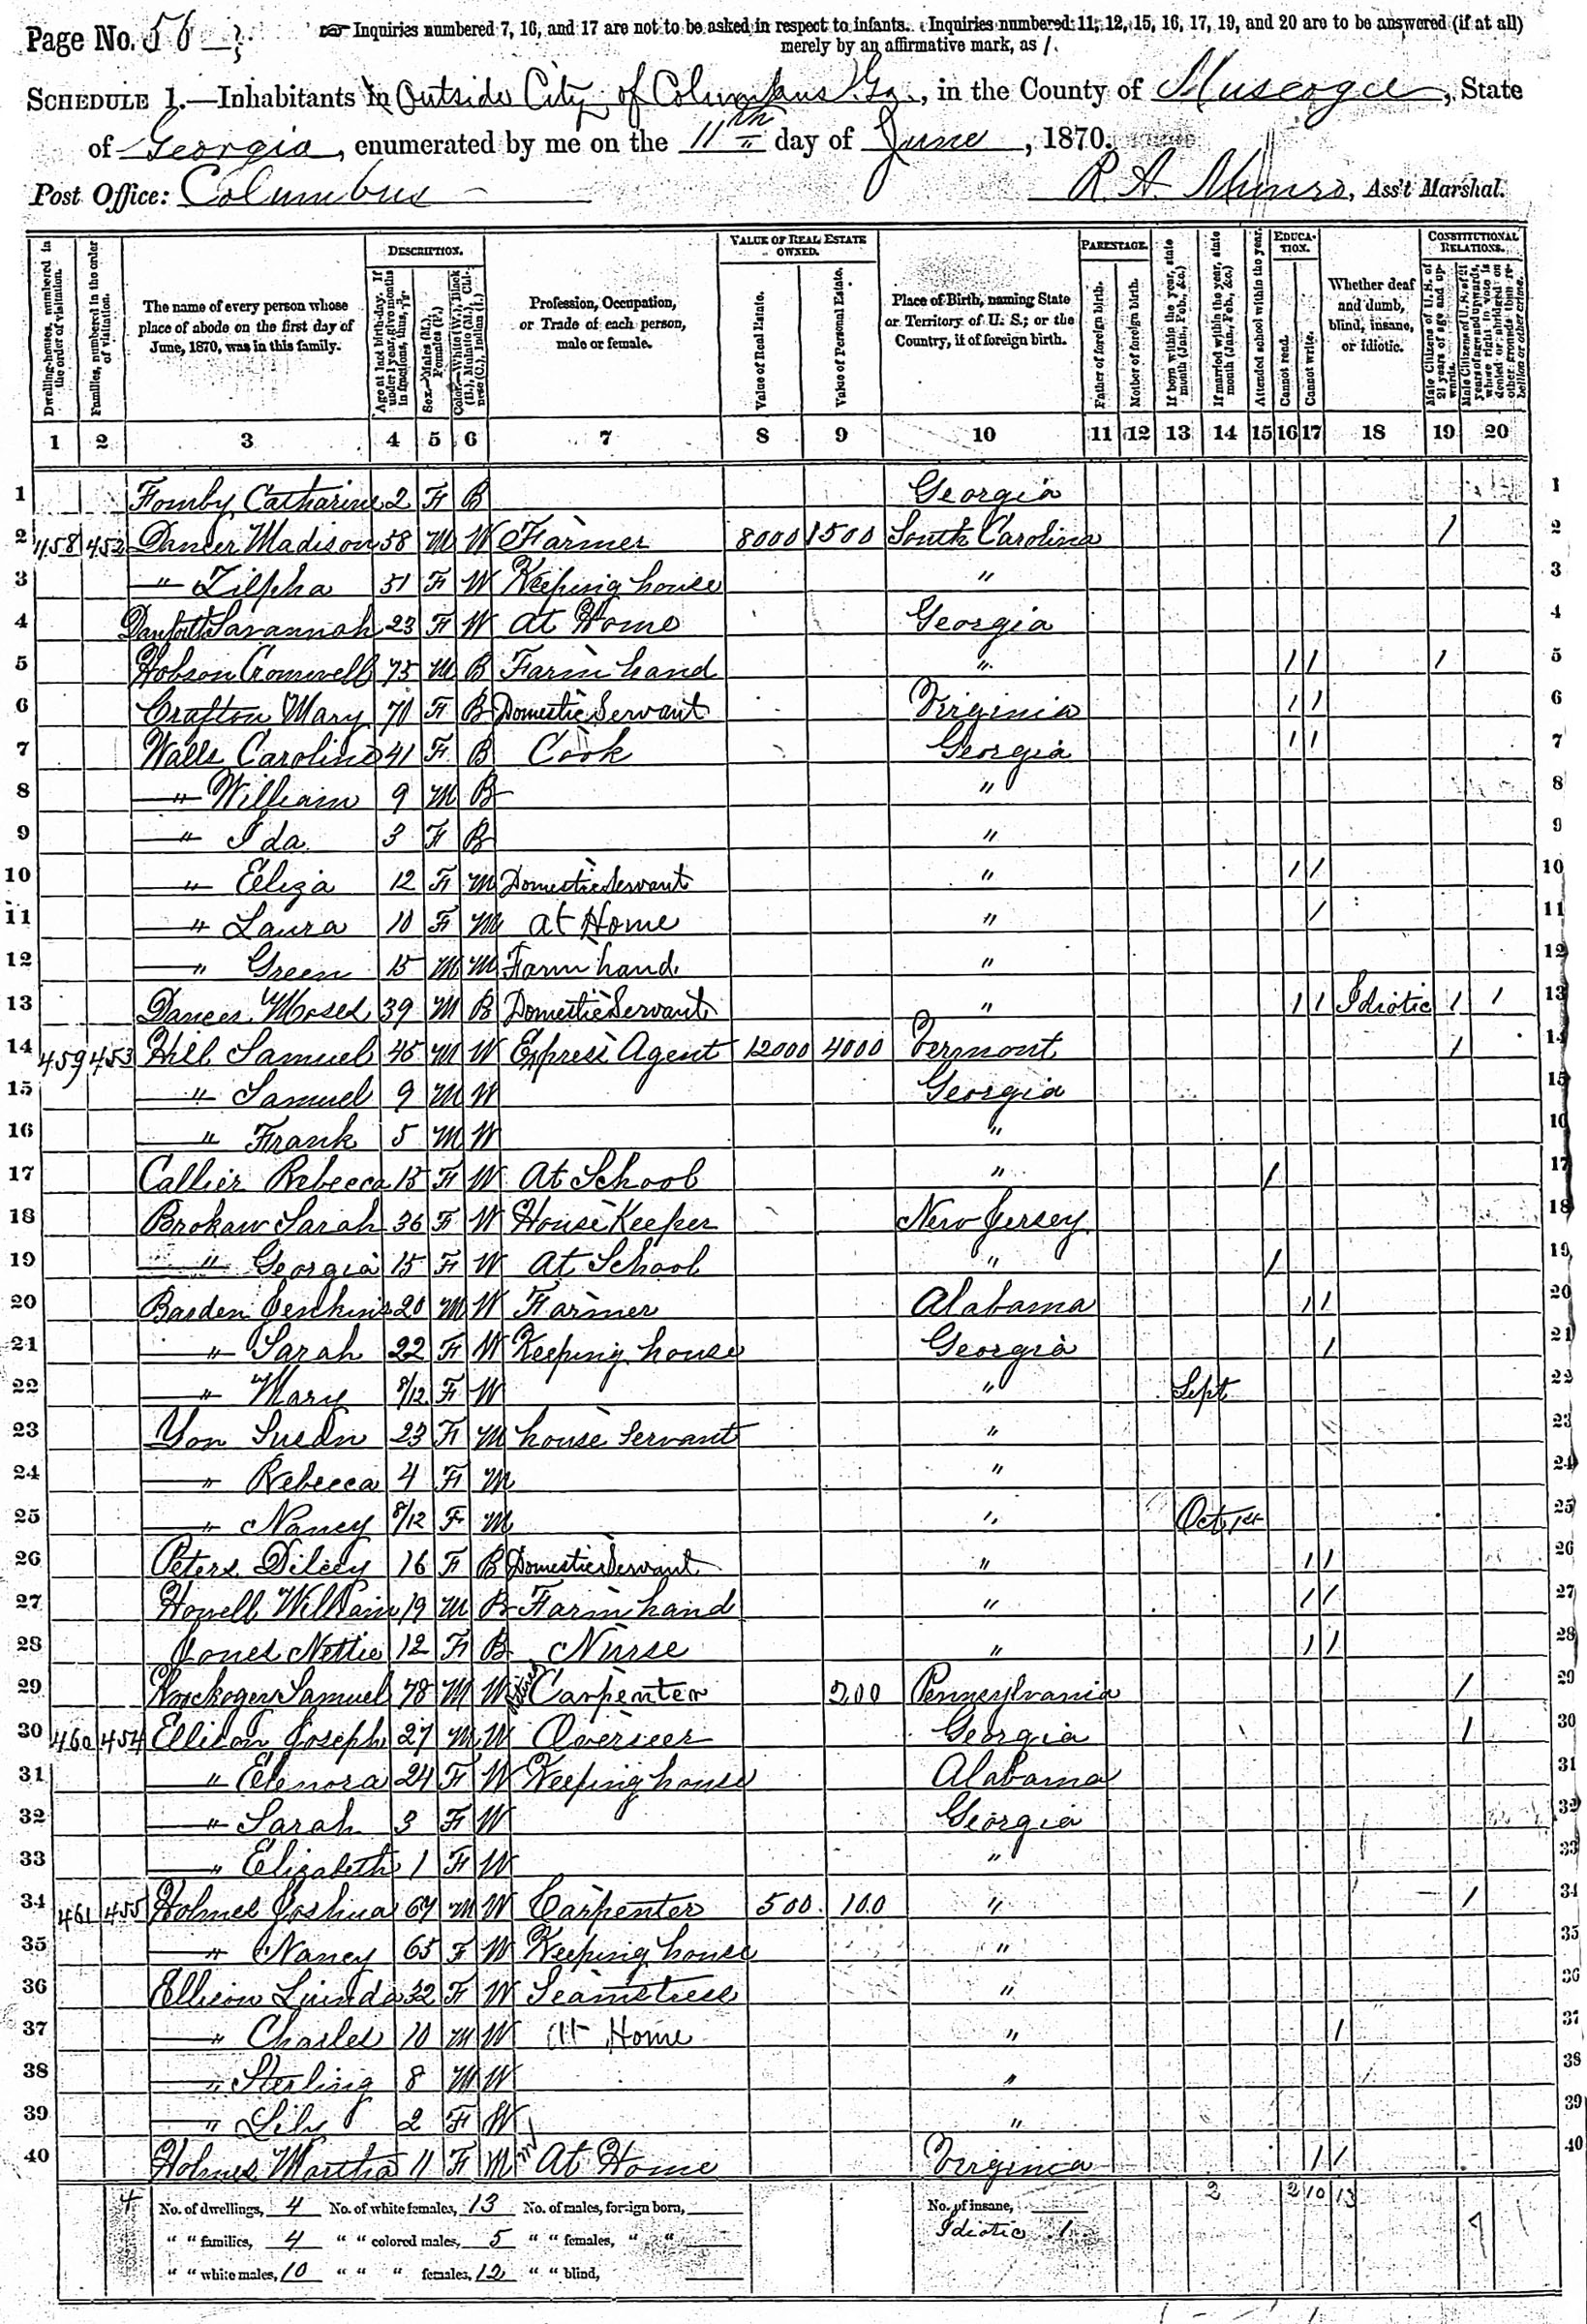 Page No. 56
☞ Inquiries numbered 7, 16, and 17 are not to be asked in respect to infants. Inquiries numbered 11, 12, 15, 16, 17, 19, and 20 are to be answered (if at all)
merely by an affirmative mark, as /.
SCHEDULE 1.—Inhabitants in Outside City of Columbus Ga., in the County of Muscogee, State
of Georgia, enumerated by me on the 11th day of June, 1870.
Post Office: Columbus R. A. Munro, Ass't Marshal.
Dwelling-houses, numbered in the order of visitation.
Families, numbered in the order of visitation.
The name of every person whose place of abode on the first day of June, 1870, was in this family.
DESCRIPTION.
Age at last birth-day. If under 1 year, give months in fractions, thus, 3/12.
Sex.—Males (M.), Females (F.)
Color.—White (W.), Black (B.), Mulatto (M.), Chinese (C.), Indian (I.)
Profession, Occupation, or Trade of each person, male or female.
VALUE OF REAL ESTATE OWNED.
Value of Real Estate.
Value of Personal Estate.
Place of Birth, naming State or Territory of U. S.; or the Country, if of foreign birth.
PARENTAGE.
Father of foreign birth.
Mother of foreign birth.
If born within the year, state month (Jan., Feb., &c.)
If married within the year, state month (Jan., Feb., &c.)
Attended school within the year.
EDUCATION.
Cannot read.
Cannot write.
Whether deaf and dumb, blind, insane, or idiotic.
CONSTITUTIONAL RELATIONS.
Male Citizens of U. S. of 21 years of age and upwards.
Male Citizens of U. S. of 21 years of age and upwards, whose right to vote is denied or abridged on other grounds than rebellion or other crime.
1 2 3 4 5 6 7 8 9 10 11 12 13 14 15 16 17 18 19 20
1 Fomby Catharine 2 F B Georgia 1
2 458 452 Dancer Madison 58 M W Farmer 8000 1500 South Carolina / 2
3 " Zilpha 51 F W Keeping house " 3
4 Danforth Savannah 23 F W At Home Georgia 4
5 Hobson Cromwell 75 M B Farm hand " / / / 5
6 Crafton Mary 70 F B Domestic Servant Virginia / / 6
7 Walls Caroline 41 F B Cook Georgia / / 7
8 " William 9 M B " 8
9 " Ida 3 F B " 9
10 " Eliza 12 F M Domestic Servant " / / 10
11 " Laura 10 F M At Home " / 11
12 " Green 15 M M Farm hand " 12
13 Dancer Moses 39 M B Domestic Servant " / / Idiotic / / 13
14 459 453 Hill Samuel 45 M W Express Agent 12000 4000 Vermont / 14
15 " Samuel 9 M W Georgia 15
16 " Frank 5 M W " 16
17 Callier Rebecca 15 F W At School " / 17
18 Brokaw Sarah 36 F W House Keeper New Jersey 18
19 " Georgia 15 F W At School " / 19
20 Barden Jenkins 20 M W Farmer Alabama / / 20
21 " Sarah 22 F W Keeping house Georgia / 21
22 " Mary 8/12 F W " Sept 22
23 Yon Susan 23 F M house Servant " 23
24 " Rebecca 4 F M " 24
25 " Nancy 8/12 F M " Oct 1st 25
26 Peters Dilcey 16 F B Domestic Servant " / / 26
27 Howell William 19 M B Farm hand " / / 27
28 Jones Nettie 12 F B Nurse " / / 28
29 Samuel 78 M W Retired Carpenter 200 Pennsylvania / 29
30 460 454 Ellison Joseph 27 M W Overseer Georgia / 30
31 " Elenora 24 F W Keeping house Alabama 31
32 " Sarah 3 F W Georgia 32
33 " Elizabeth 1 F W " 33
34 461 455 Holmes Joshua 67 M W Carpenter 500 100 " / 34
35 " Nancy 65 F W Keeping house " 35
36 Ellison Luinda 32 F W Seamstress " 36
37 " Charles 10 M W At Home " / 37
38 " Sterling 8 M W " 38
39 " Lily 2 F W " 39
40 Holmes Martha 11 F M At Home Virginia / / 40
4 No. of dwellings, 4 No. of white females, 13 No. of males, foreign born, No. of insane, 2 2 10 13
" " families, 4 " " colored males, 5 " " females, " " Idiotic 1 7
" " white males, 10 " " " females, 12 " " blind,